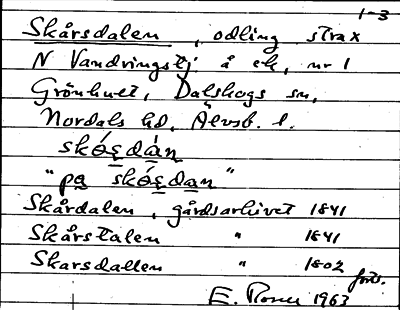 1-3
Skårsdalen, odling strax
N Vandringstj. å ek, nr 1
Grönhult, Dalskogs sn,
Nordals hd, Älvsb. l.
skǿşdàn
"pa skǿşdan"
Skårdalen, gårdsarkivet 1841
Skårstalen " 1841
Skarsdallen " 1802
forts.
E. 1963